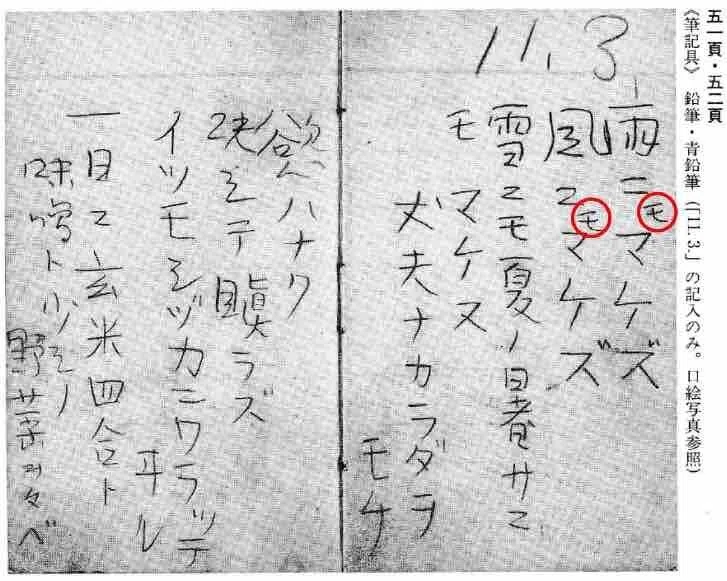 五一頁・五二頁
《筆記具》 鉛筆・青鉛筆(「11.3.」の記入のみ。口絵写真参照)
11.3.
雨ニモマケズ
風ニモマケズ
雪ニモ夏ノ暑サニ
モ マケヌ
丈夫ナカラダヲ
モチ
慾ハナク
決シテ瞋ラズ
イツモシヅカニワラッテ
ヰル
一日ニ玄米四合ト
味噌ト少シノ
野菜ヲタベ